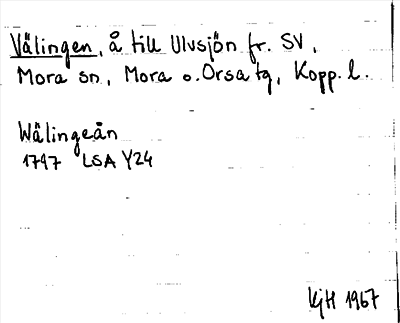 Välingen, å till Ulvsjön fr. SV,
Mora sn, Mora o. Orsa tg, Kopp. l.
Wälingeån
1797 LSA Y24
KjH 1967